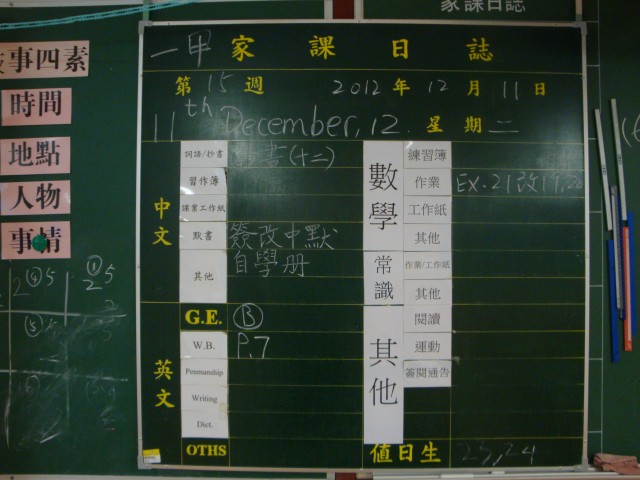 家課日誌
事四素
時間
地點
人物
事情
一甲 家課日誌
第 15 週 2012 年 12 月 11 日
11th December, 12. 星期二
中文
詞語/抄書 書(十二)
習作簿
課業工作紙
默書 簽改中默
其他 自學册
英文
G.E. Ⓑ
W.B. P.7
Penmanship
Writing
Dict.
OTHS
數學
練習簿
作業 EX.21改19,20
工作紙
其他
常識
作業/工作紙
其他
其他
閱讀
運動
簽閱通告
值日生 23,24